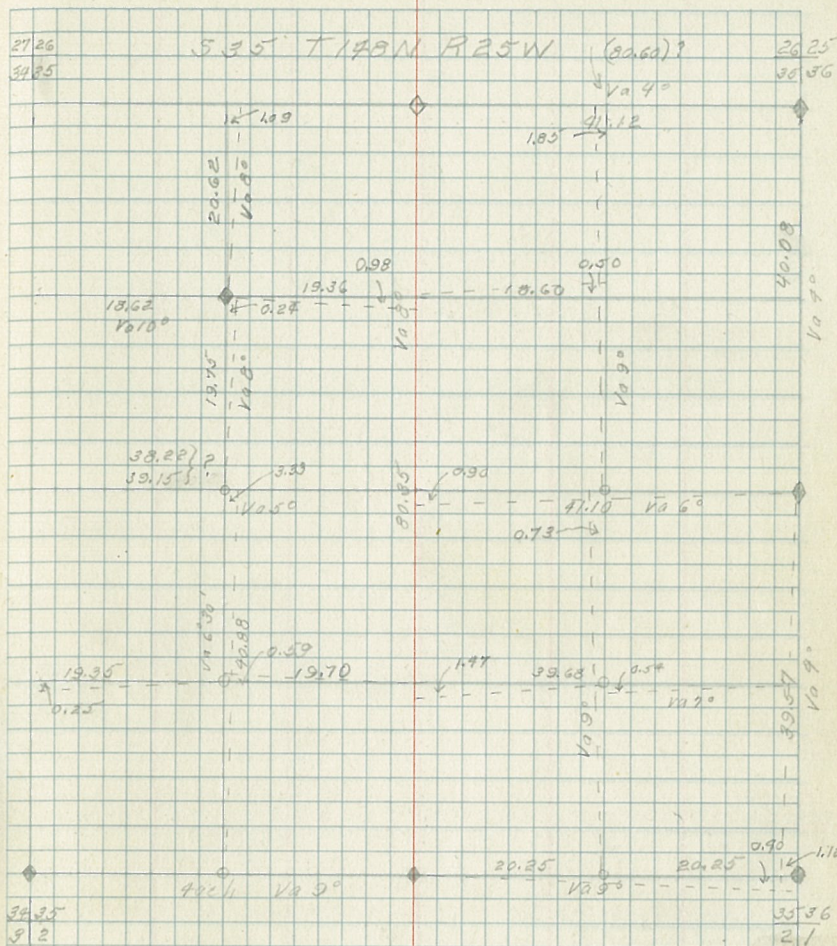 27 26
34 35
S 35 T148N R25W (80.60)?
26 25
35 36
Va 4°
1.09
41.12
1.85
20.62
Va 8°
40.08
Va 4°
0.98
0.50
19.36
18.60
18.62
Va 10°
0.24
Va 8°
19.75
Va 8°
Va 9°
38.22 } ?
39.15 }
3.33
Va 5°
80.35
0.90
41.10
Va 6°
0.73
Va 6° 30'
40.88
0.59
19.35
19.70
1.47
39.68
0.54
0.25
Va 7°
Va 9°
39.57
Va 9°
0.40
20.25
20.25
Va 9°
Va 9°
34 35
3 2
35 36
2 1